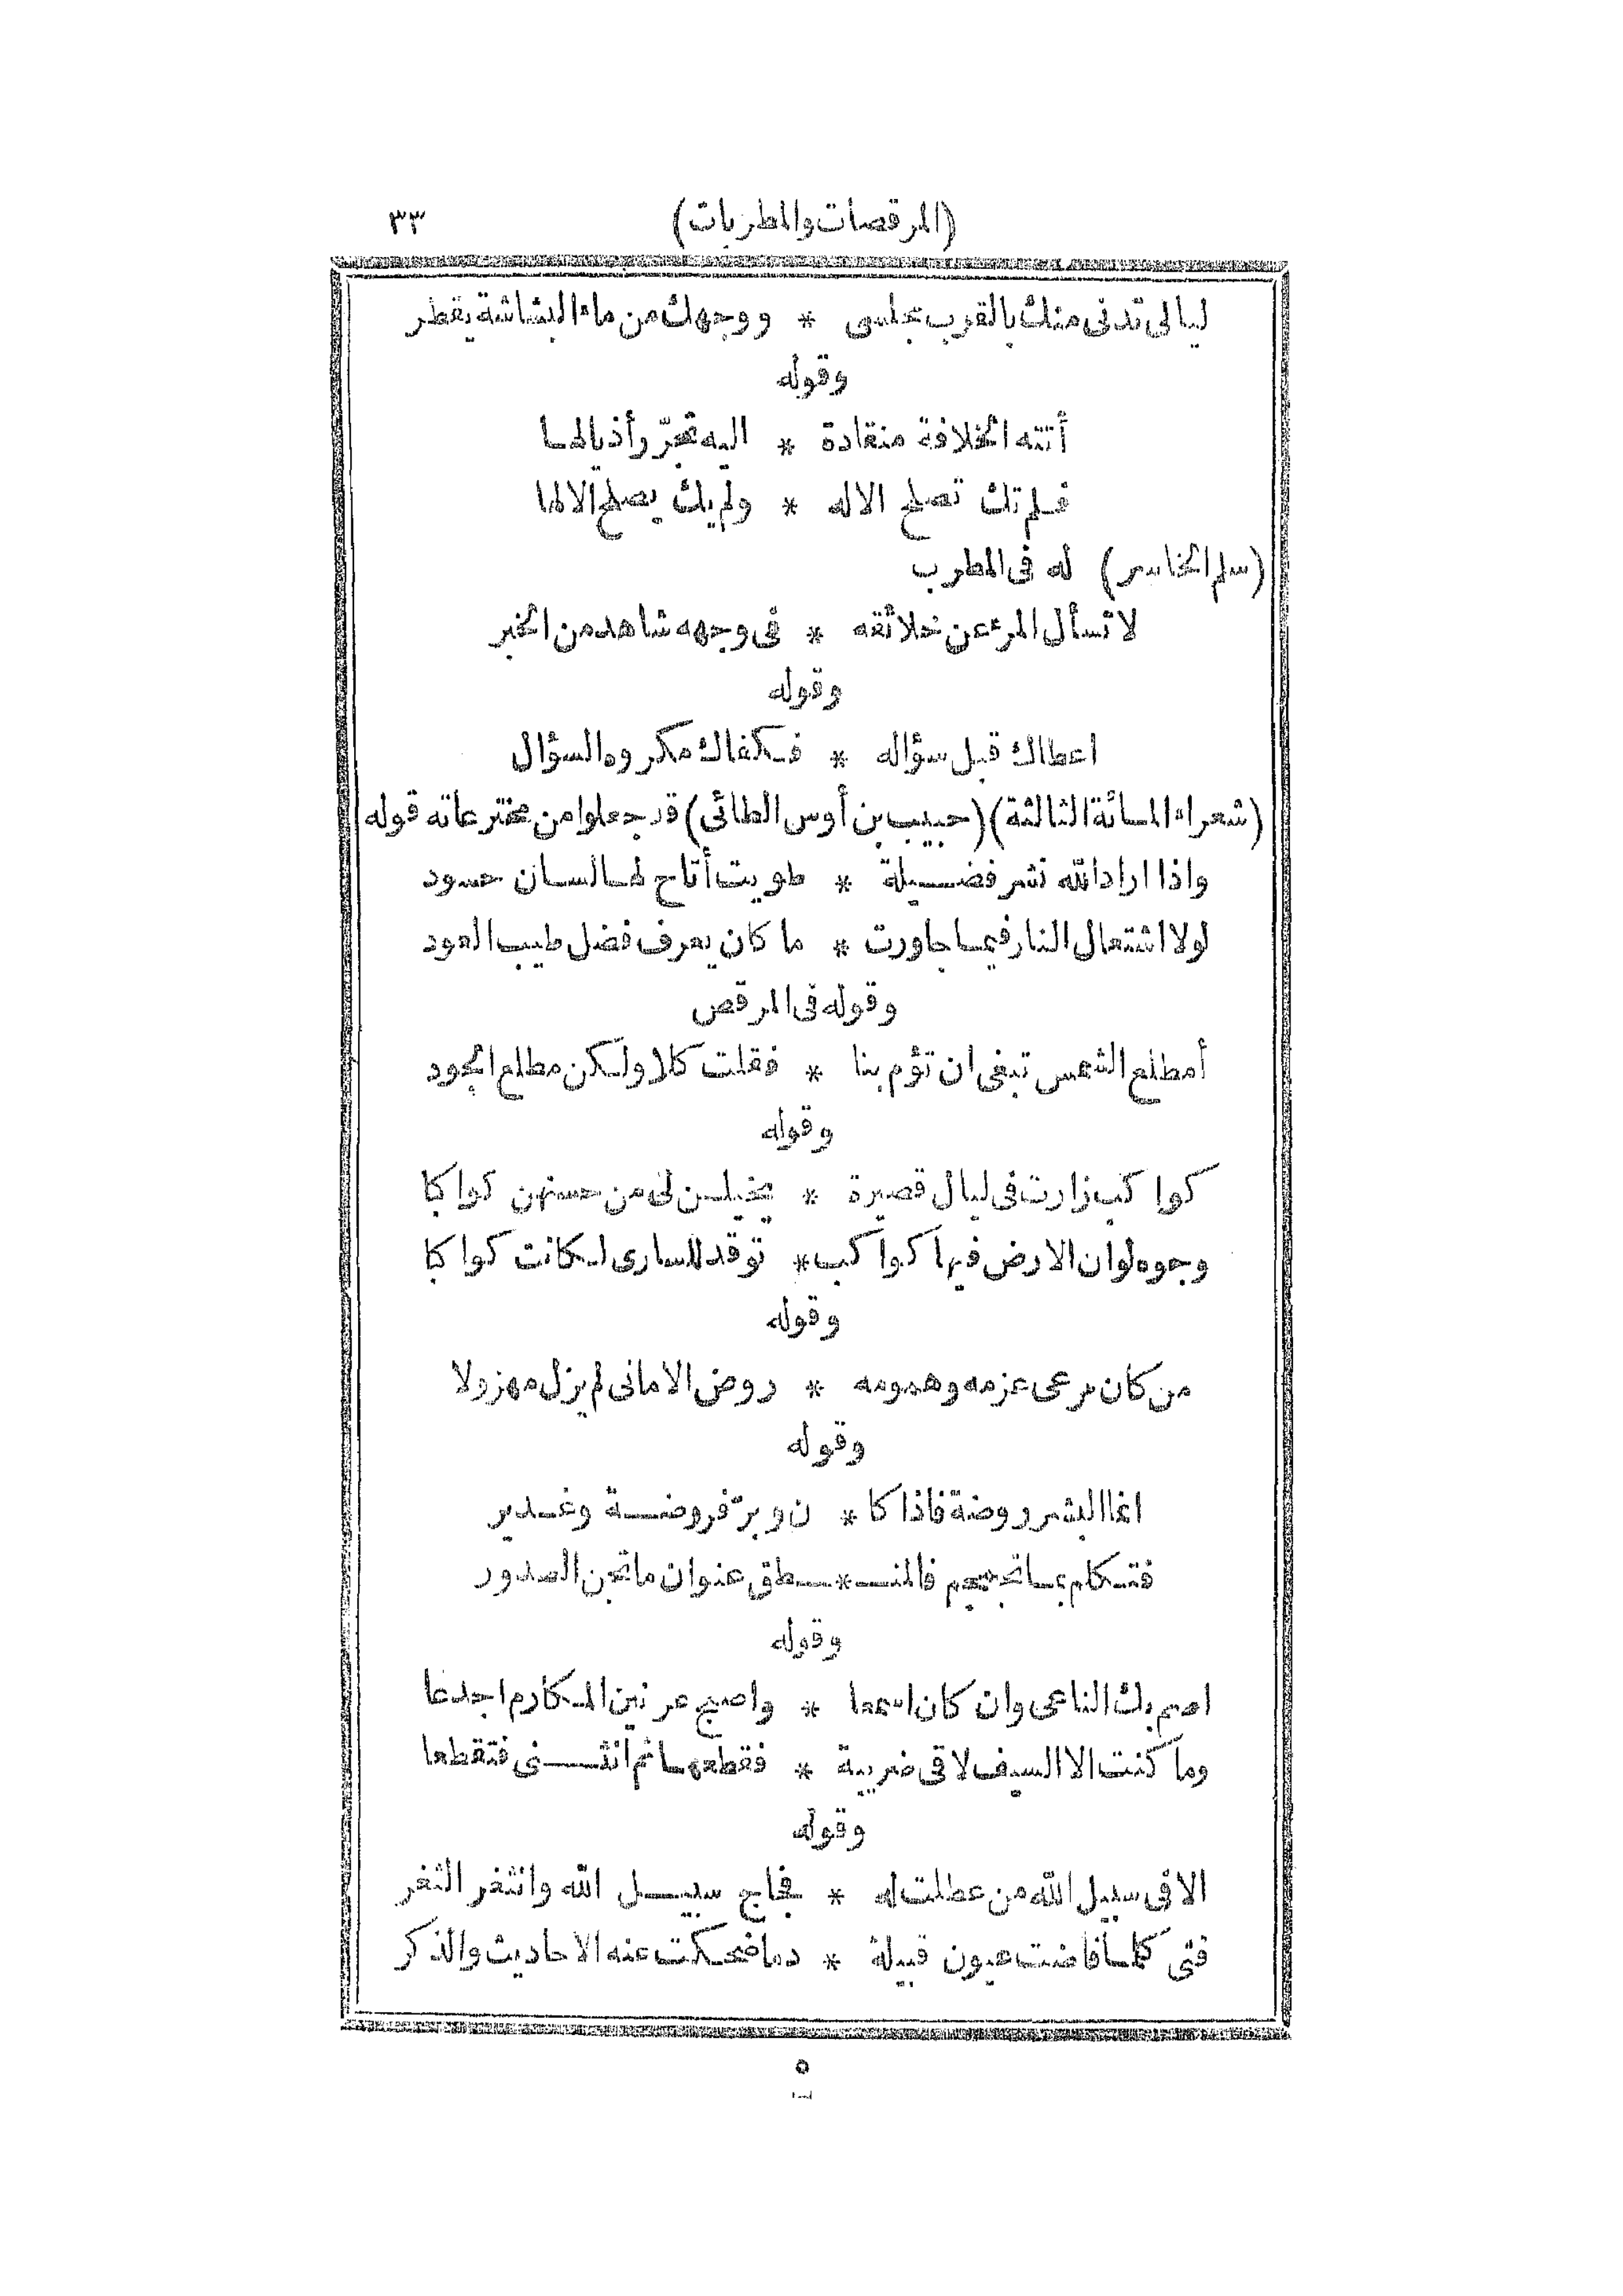 (المرقصات والمطربات) ٣٣
ليالى تدنى منك بالقرب مجلسى * ووجهك من ماء البشاشة يقطر
وقوله
أتته الخلافة منقادة * اليه تجرّر أذيالها
فلم تك تصلح الا له * ولم يك يصلح الا لها
(سلم الخاسر) له فى المطرب
لا تسأل المرء عن خلائقه * فى وجهه شاهد من الخبر
وقوله
اعطاك قبل سؤاله * فكفاك مكروه السؤال
(شعراء المائة الثالثة) (حبيب بن أوس الطائى) قد جعلوا من مخترعاته قوله
واذا اراد الله نشر فضيلة * طويت أتاح لها لسان حسود
لولا اشتعال النار فيما جاورت * ما كان يعرف فضل طيب العود
وقوله فى المرقص
أمطلع الشمس تبغى ان تؤم بنا * فقلت كلا ولكن مطلع الجود
وقوله
كواكب زارت فى ليال قصيرة * يخيلن لى من حسنهن كواكبا
وجوه لوان الارض فيها كواكب * توقد للسارى لكانت كواكبا
وقوله
من كان مرعى عزمه وهمومه * روض الامانى لم يزل مهزولا
وقوله
انما البشر روضة فاذا كا * ن وبرّ فروضة وغدير
فتكلم بما تجمجم فالمنـ * ـطق عنوان ما تجن الصدور
وقوله
اصم بك الناعى وان كان اسمعا * واصبح عرنين المكارم اجدعا
وما كنت الا السيف لاقى ضريبة * فقطعها ثم انثنى فتقطعا
وقوله
الا فى سبيل الله من عطلت له * فجاج سبيل الله وانثغر الثغر
فتى كلما فاضت عيون قبيلة * دما ضحكت عنه الاحاديث والذكر
٥